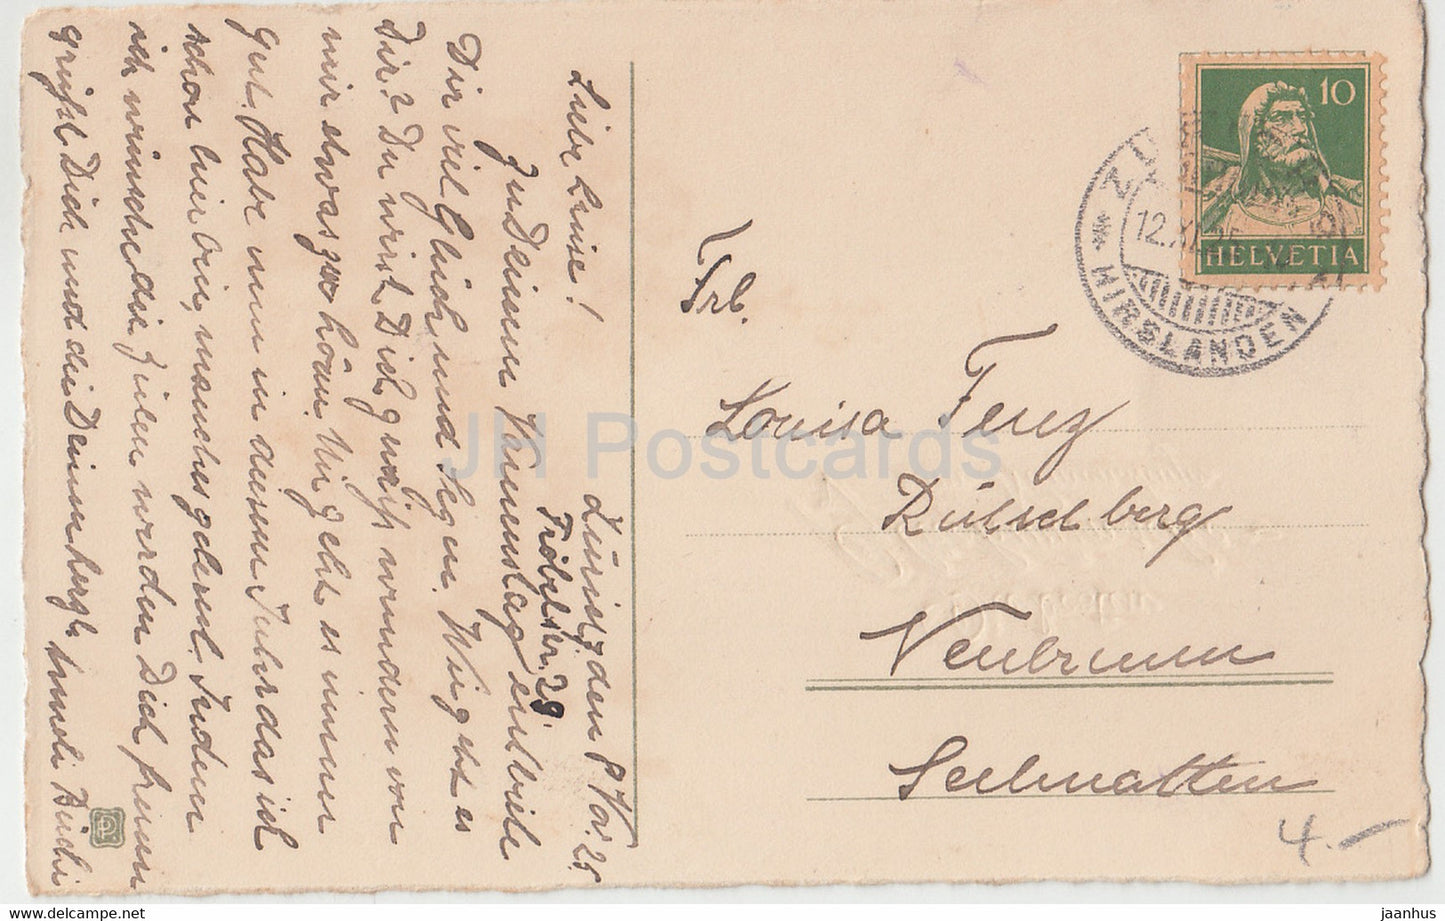 Zürich, den 8 Nov. 25.
Fröbelstr. 29.
Liebe Luise!
Zu Deinem Namenstag entbiete
Dir viel Glück und Segen. Wie geht es
Dir? Du wirst Dich gewiss wundern von
mir etwas zu hören. Mir geht es immer
gut. Habe nun in diesem Jahr das ich
schon hier bin, manches gelernt. Indem
ich wünsche die Zeilen werden Dich freuen
grüsst Dich und die Deinen herzl.
Frl.
Louisa Frey
Rütschberg
Neubrunn
Seelmatten
4.-
HELVETIA
10
12.XI.25
HIRSLANDEN
JH Postcards
jaanhus
www.delcampe.net